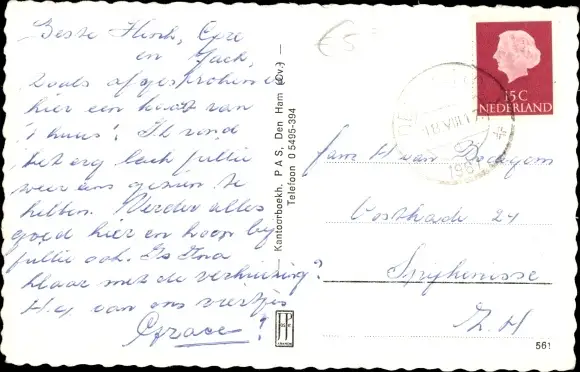 Beste Henk, Eyre
en Jack,
Zoals afgesproken
hier een kaart van
't huus'. Ik vond
het erg leuk jullie
weer ens gezien te
hebben. Verder alles
goed hier en hoop bij
jullie ook. Is Ina
klaar met de verhuizing?
H.g. van ons viertjes
Grace!
Kantoorboekh. P A S, Den Ham (Ov.) —
Telefoon 0 5495-394
€5
18.VIII.17
1967
15 C
NEDERLAND
Fam H van Bodegom
Oostkade 24
Spijkenisse
Z. H
JP
561